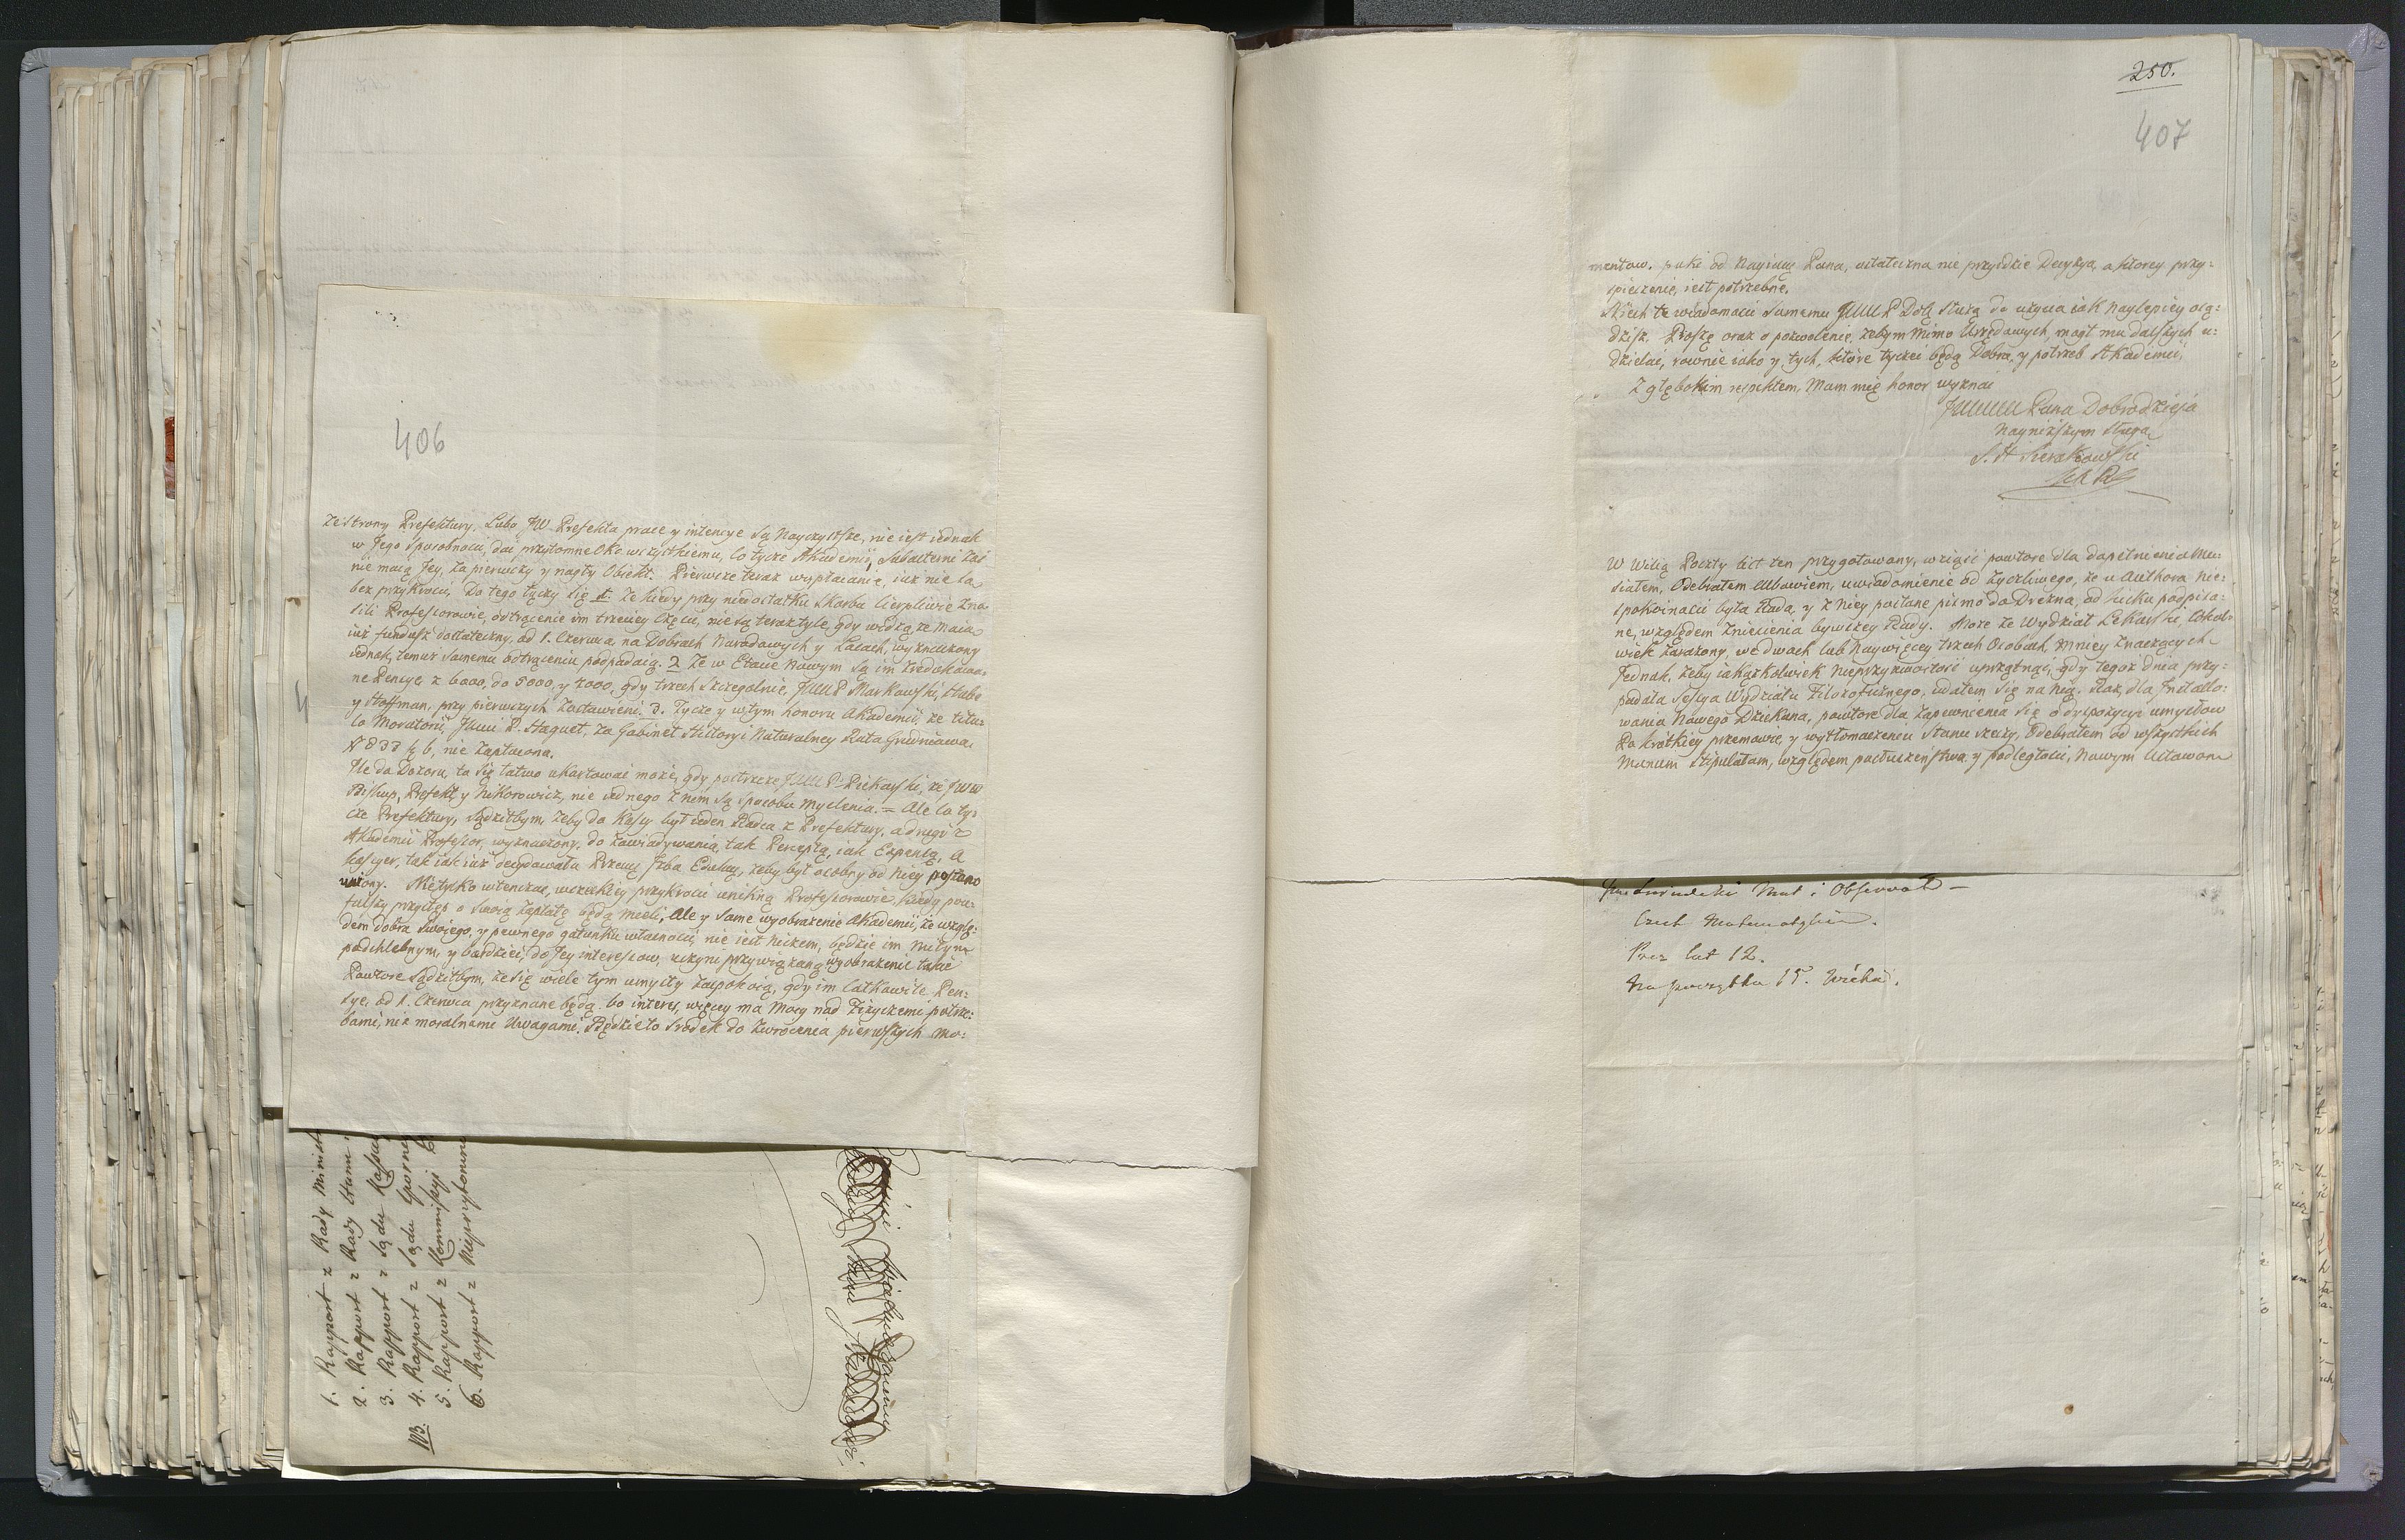 406
ze strony Prefektury. Lubo JW Prefekta prace y intencye są nayczystsze, nie iest iednak
w Jego sposobności, dać przytomne Oko wszystkiemu, co tycze Akademii, Subalterni zaś
nie maią Jey, za pierwszy y nagły Obiekt. Pierwsze teraz wypłacanie, iuż nie są
bez przykrości, Do tego łączy się 1. że kiedy przy niedostatku skarbu cierpliwie zno=
sili Professorowie, odtrącenie im trzeciey części, nie są teraz tyle, gdy widzą, że maią
iuż fundusz dostateczny, od 1. Czerwca na Dobrach Narodowych y Lasach, wyznaczony
iednak, temuż samemu odtrąceniu podpadaią. 2 że w Etacie nowym są im zredukowa=
ne Pensye z 6000, do 5000, y 4000, gdy trzech szczególnie, JMM P Markowski,
y Hoffman, przy pierwszych zostawieni. 3. Tycze y w tym honoru Akademii, że titu=
lo Moratorii, JMci P. Haquet, za Gabinet Historyi Naturalney Rata Grudniowa,
# 833 1/3 6, nie zapłacona.
Ile do Dozoru, to się łatwo ukartować może, gdy postrzeże JMM P. Piekarski, że JWW
Biskup, Prefekt y Nikorowicz, nie iednego z nim są sposobu myślenia. = Ale co ty=
cze Prefektury, sądziłbym, żeby do Kassy był ieden Radca z Prefektury, a drugi z
Akademii Professor, wyznaczony, do zawiadywania, tak Perceptą, iak Expensą, a
kassyer, tak iak iuż decydowała Przeus Izba Eduku, żeby był osobny od niey postano
wiony. Nie tylko wtenczas, wszelkiey przykrości unikną Professorowie, kiedy pou=
fulszy przystęp o swoią zapłatę będą mieli, Ale y same wyobrażenie Akademii, że wzglę=
dem dobra swoiego, y pewnego gatunku własności, nie iest niczem, będzie im miłym
podchlebnym, y bardziey, do Jey interessow, uczyni przywiązane wyobrażenie takie
Powtore sądziłbym, że się wiele tym umysły zaspokoią, gdy im całkowite Pen=
sye, od 1. Czerwca przyznane będą, bo interes, więcey ma mocy nad Fizycznemi potrze=
bami, niż moralnemi Uwagami. Będzie to srodek do zwrocenia pierwszych mo=
103.
1. Rapport z Rady Minist
2. Rapport z Rady Stanu
3. Rapport z Sądu Kassa
4. Rapport z Sądu Sporne
5. Rapport z Kommissyi
6. Rapport z Nieprzytomn
250.
407
mentow. puki od Nayias: Pana, ostateczna nie przyidzie Decyzya, o ktorey przy=
spieszenie, iest potrzebne.
Niech te wiadomości samemu JMM P Dob służą do użycia iak naylepiey osą=
dzisz. Proszę oraz o pozwolenie, żebym mimo Urzędowych, mogł mu dalszych u=
dzielać, rownie iako y tych, ktore tyczeć będą Dobra, y potrzeb Akademii,
Z głębokim respektem, Mam mię honor wyznać
Pana Dobrodzieja
Nayniższym sługą
S. A Sierakowski
W Wilią Poczty list ten przygotowany, wziąść powtore dla dopełnienia mu=
siałem, Odebrałem albowiem, uwiadomienie od życzliwego, że u Authora nie=
spokoiności była Rada, y z niey posłane pismo do Drezna, od kilku podpisa=
ne, względem zniesienia bywszey Rady. Może że Wydział Lekarski, cokol=
wiek zarażony, we dwoch lub naywięcey trzech Osobach, mniey znaczących
Jednak, żeby iakążkolwiek nieprzyzwoitość uprzątnąć, gdy tegoż dnia przy=
padała Sessya Wydziału Filozoficznego, udałem się na nię. Raz, dla Installo=
wania nowego Dziekana, powtore dla zapewnienia się o dyspozycyi umysłow
Po krotkiey przemowie, y wytłomaczeniu stanu rzeczy, Odebrałem od wszystkich
Manum stipulatam, względem posłuszeństwa y podległości, nowym Ustawom
Mat i Observat —
Matematykiem.
Prez lat 12.
Na początku 15. Wieku.